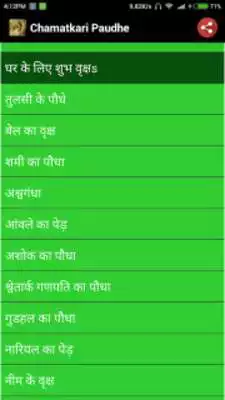 4:12PM 9.82K/s 71%
Chamatkari Paudhe
घर के लिए शुभ वृक्षs
तुलसी के पौधे
बेल का वृक्ष
शमी का पौधा
अश्वगंधा
आंवले का पेड़
अशोक का पौधा
श्वेतार्क गणपति का पौधा
गुडहल का पौधा
नारियल का पेड़
नीम के वृक्ष